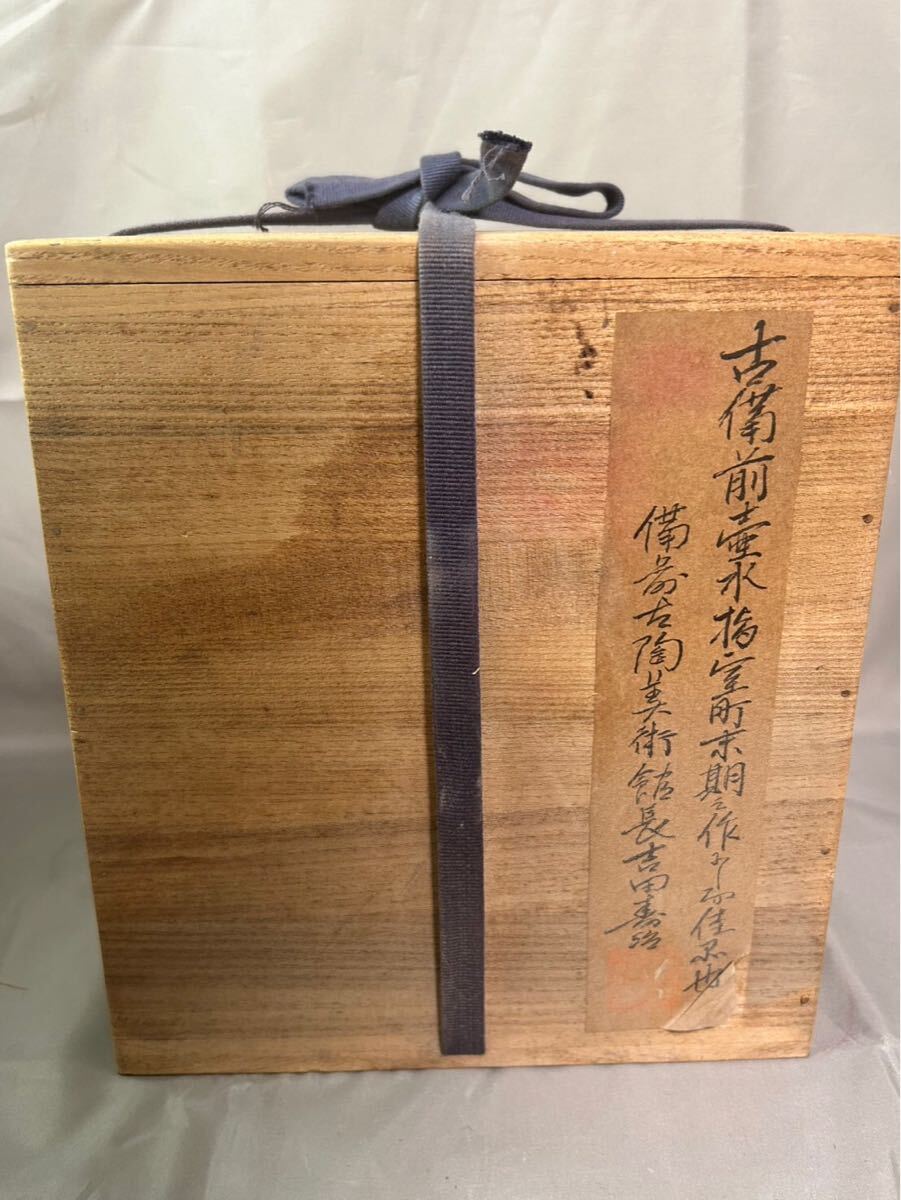 古備前壷水指室町末期之作ニ〆佳品也
備前古陶美術館長吉田壽治